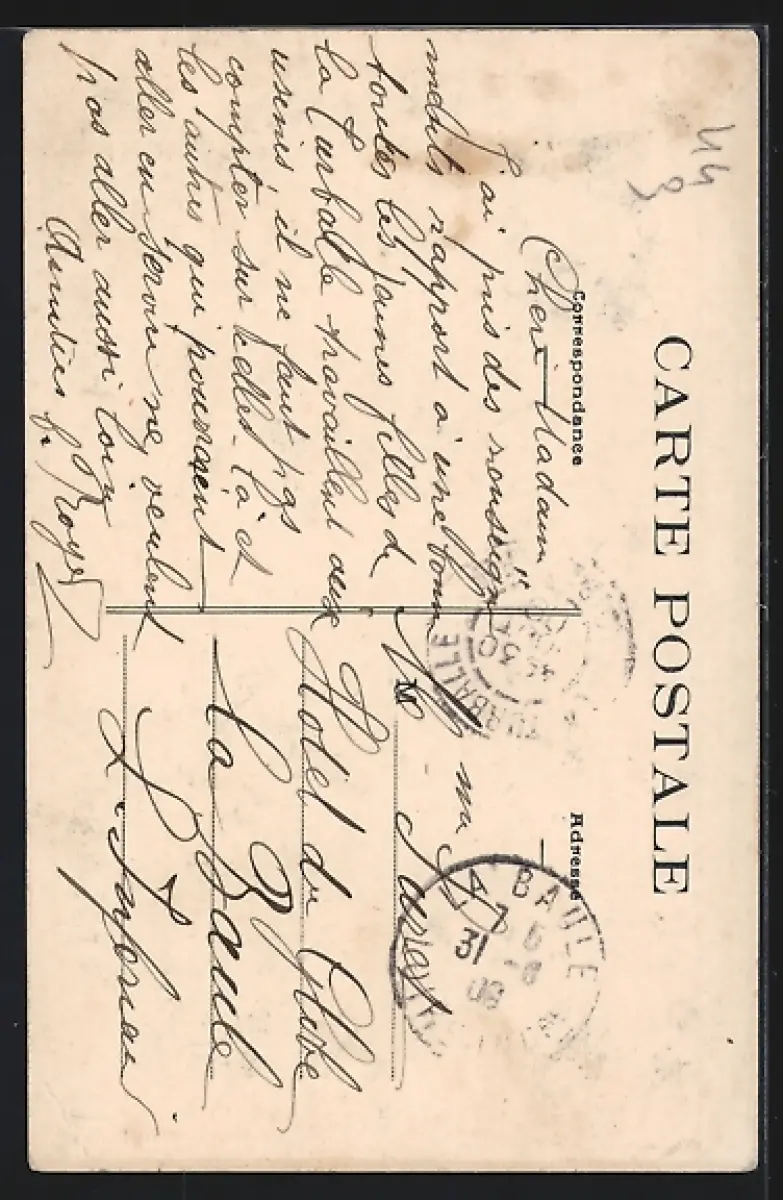 CARTE POSTALE
Correspondance
Chère Madame
J'ai pris des renseigne"
ments rapport à une bonne
toutes les jeunes filles de
la Turballe travaillent aux
usines il ne faut pas
compter sur celles-là et
les autres qui pourraient
aller en service ne veulent
pas aller aussi loin
Amitiés f. Royer
Adresse
M me
Hotel du Globe
La Baule
L. Inférieure
TURBALLE
30
BAULE
31
08
44